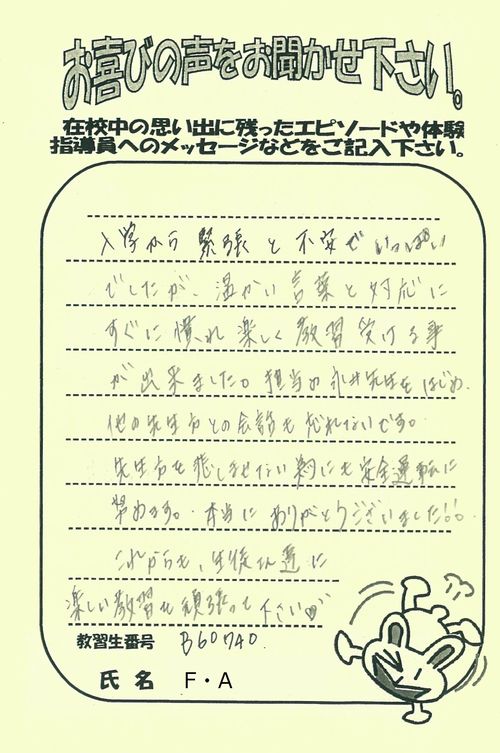 お喜びの声をお聞かせ下さい。
在校中の思い出に残ったエピソードや体験
指導員へのメッセージなどをご記入下さい。
入学から緊張と不安でいっぱい
でしたが、温かい言葉と対応に
すぐに慣れ楽しく教習受ける事
が出来ました。担当の永井先生をはじめ、
他の先生方との会話も忘れないです。
先生方を悲しませない為にも安全運転に
努めます。本当にありがとうございました!!
これからも、生徒さん達に
楽しい教習を頑張って下さい♡
教習生番号 B60740
氏名 F・A